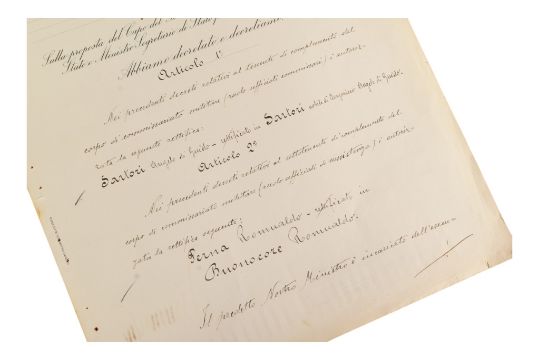 Sulla proposta del Capo del
Stato e Ministro Segretario di Stato
Abbiamo decretato e decretiamo
Articolo 1º
Nei precedenti decreti relativi al tenente di complemento del
corpo di commissariato militare (ruolo ufficiali commissari) è autoriz-
zata la seguente rettifica:
Sartori Angelo di Guido - rettificato in Sartori Angelo di Guido.
Articolo 2º
Nei precedenti decreti relativi al sottotenente di complemento del
corpo di commissariato militare (ruolo ufficiali di sussistenza) è autoriz-
zata la rettifica seguente:
Perna Romualdo - rettificato in
Buonocore Romualdo.
Il predetto Nostro Ministro è incaricato dell'esecu-